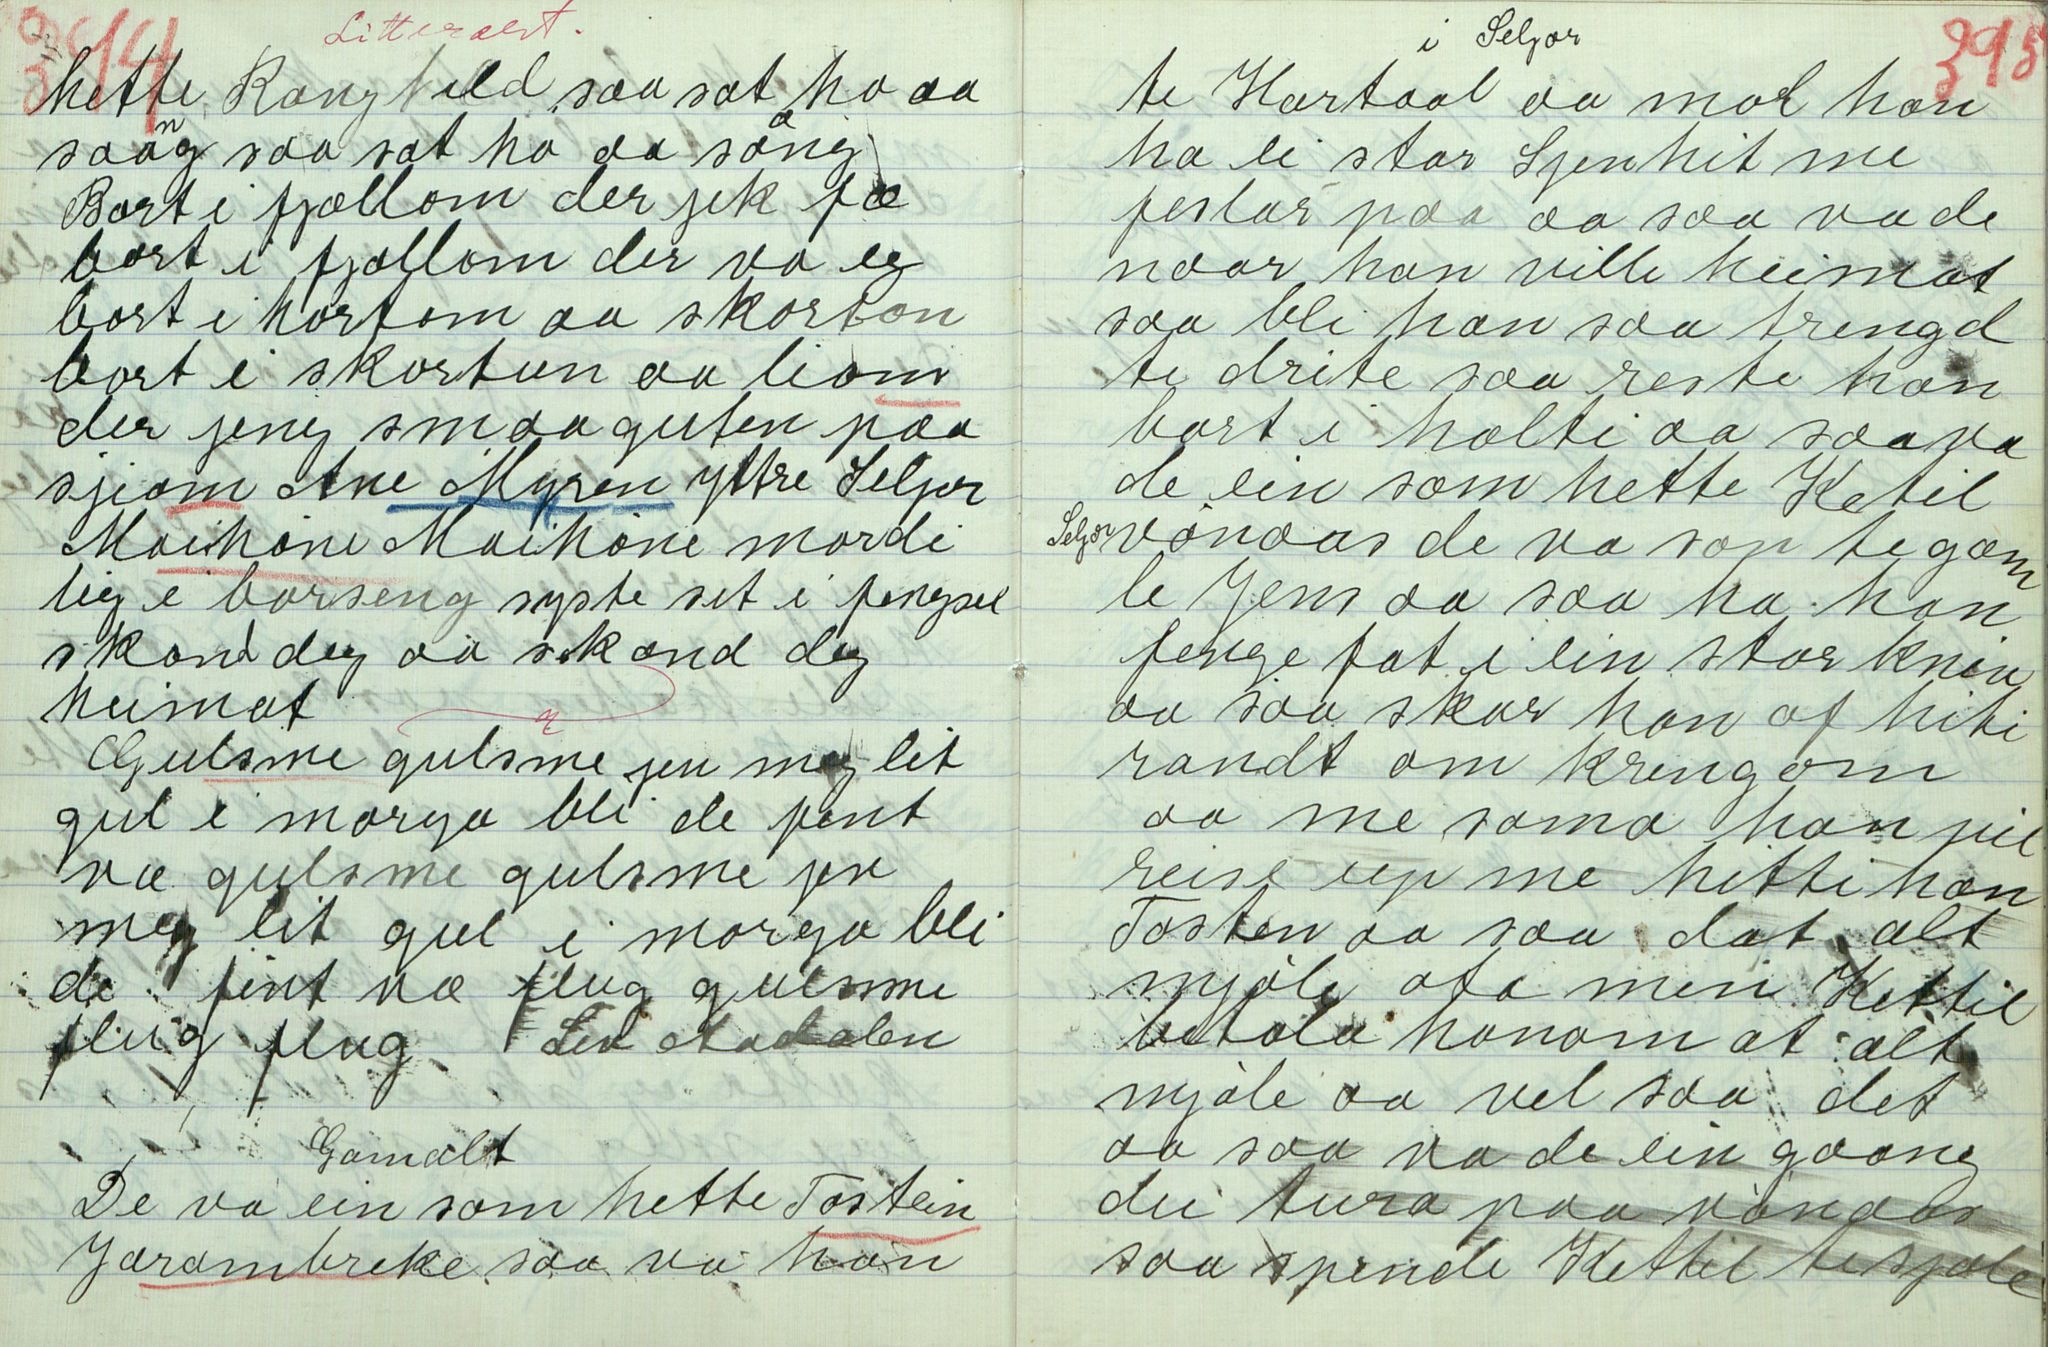 394
Litterært.
hette Ranghild saa sat ho aa
saang saa sat ho aa sång
Bort i fjøllom der jek fæ
bort i fjøllom der va eg
bort i hortom aa skorton
bort i skorton aa liom
der jeng smaaguten paa
sjiom Ane Myren Yttre Seljor
Maihøne Maihøne mordi
lig i barseng syste sit i fengsel
skond deg aa skond deg
heimat
Gulsme gulsme jev meg lit
gul i morgo bli de pent
væ gulsme gulsme jev
meg lit gul i morgo bli
de fint væ flug gulsme
flug flug Liv Aadalen
Gamalt
De va ein som hette Tostein
Jorambrekke saa va han
395
i Seljor
te Hartaal aa mol han
ha ei stor Sjenhit me
peslar paa aa saa va de
naar han ville heimat
saa blei han saa trengd
te drite saa reste han
bort i holti aa saa va
de ein som hette Ketil
Seljor vønaas de va son te gam
le Jens aa saa ha han
fenge fat i ein stor kniv
aa saa skar han af hiti
randt om kringom
aa me somo han jil
reise up me hitti han
Tosten aa saa dat alt
mjøle afa men Kettil
betala honom at alt
mjøle aa vel saa det
aa saa va de ein gaang
dei tura paa vønaas
saa spende Kettil te sjole